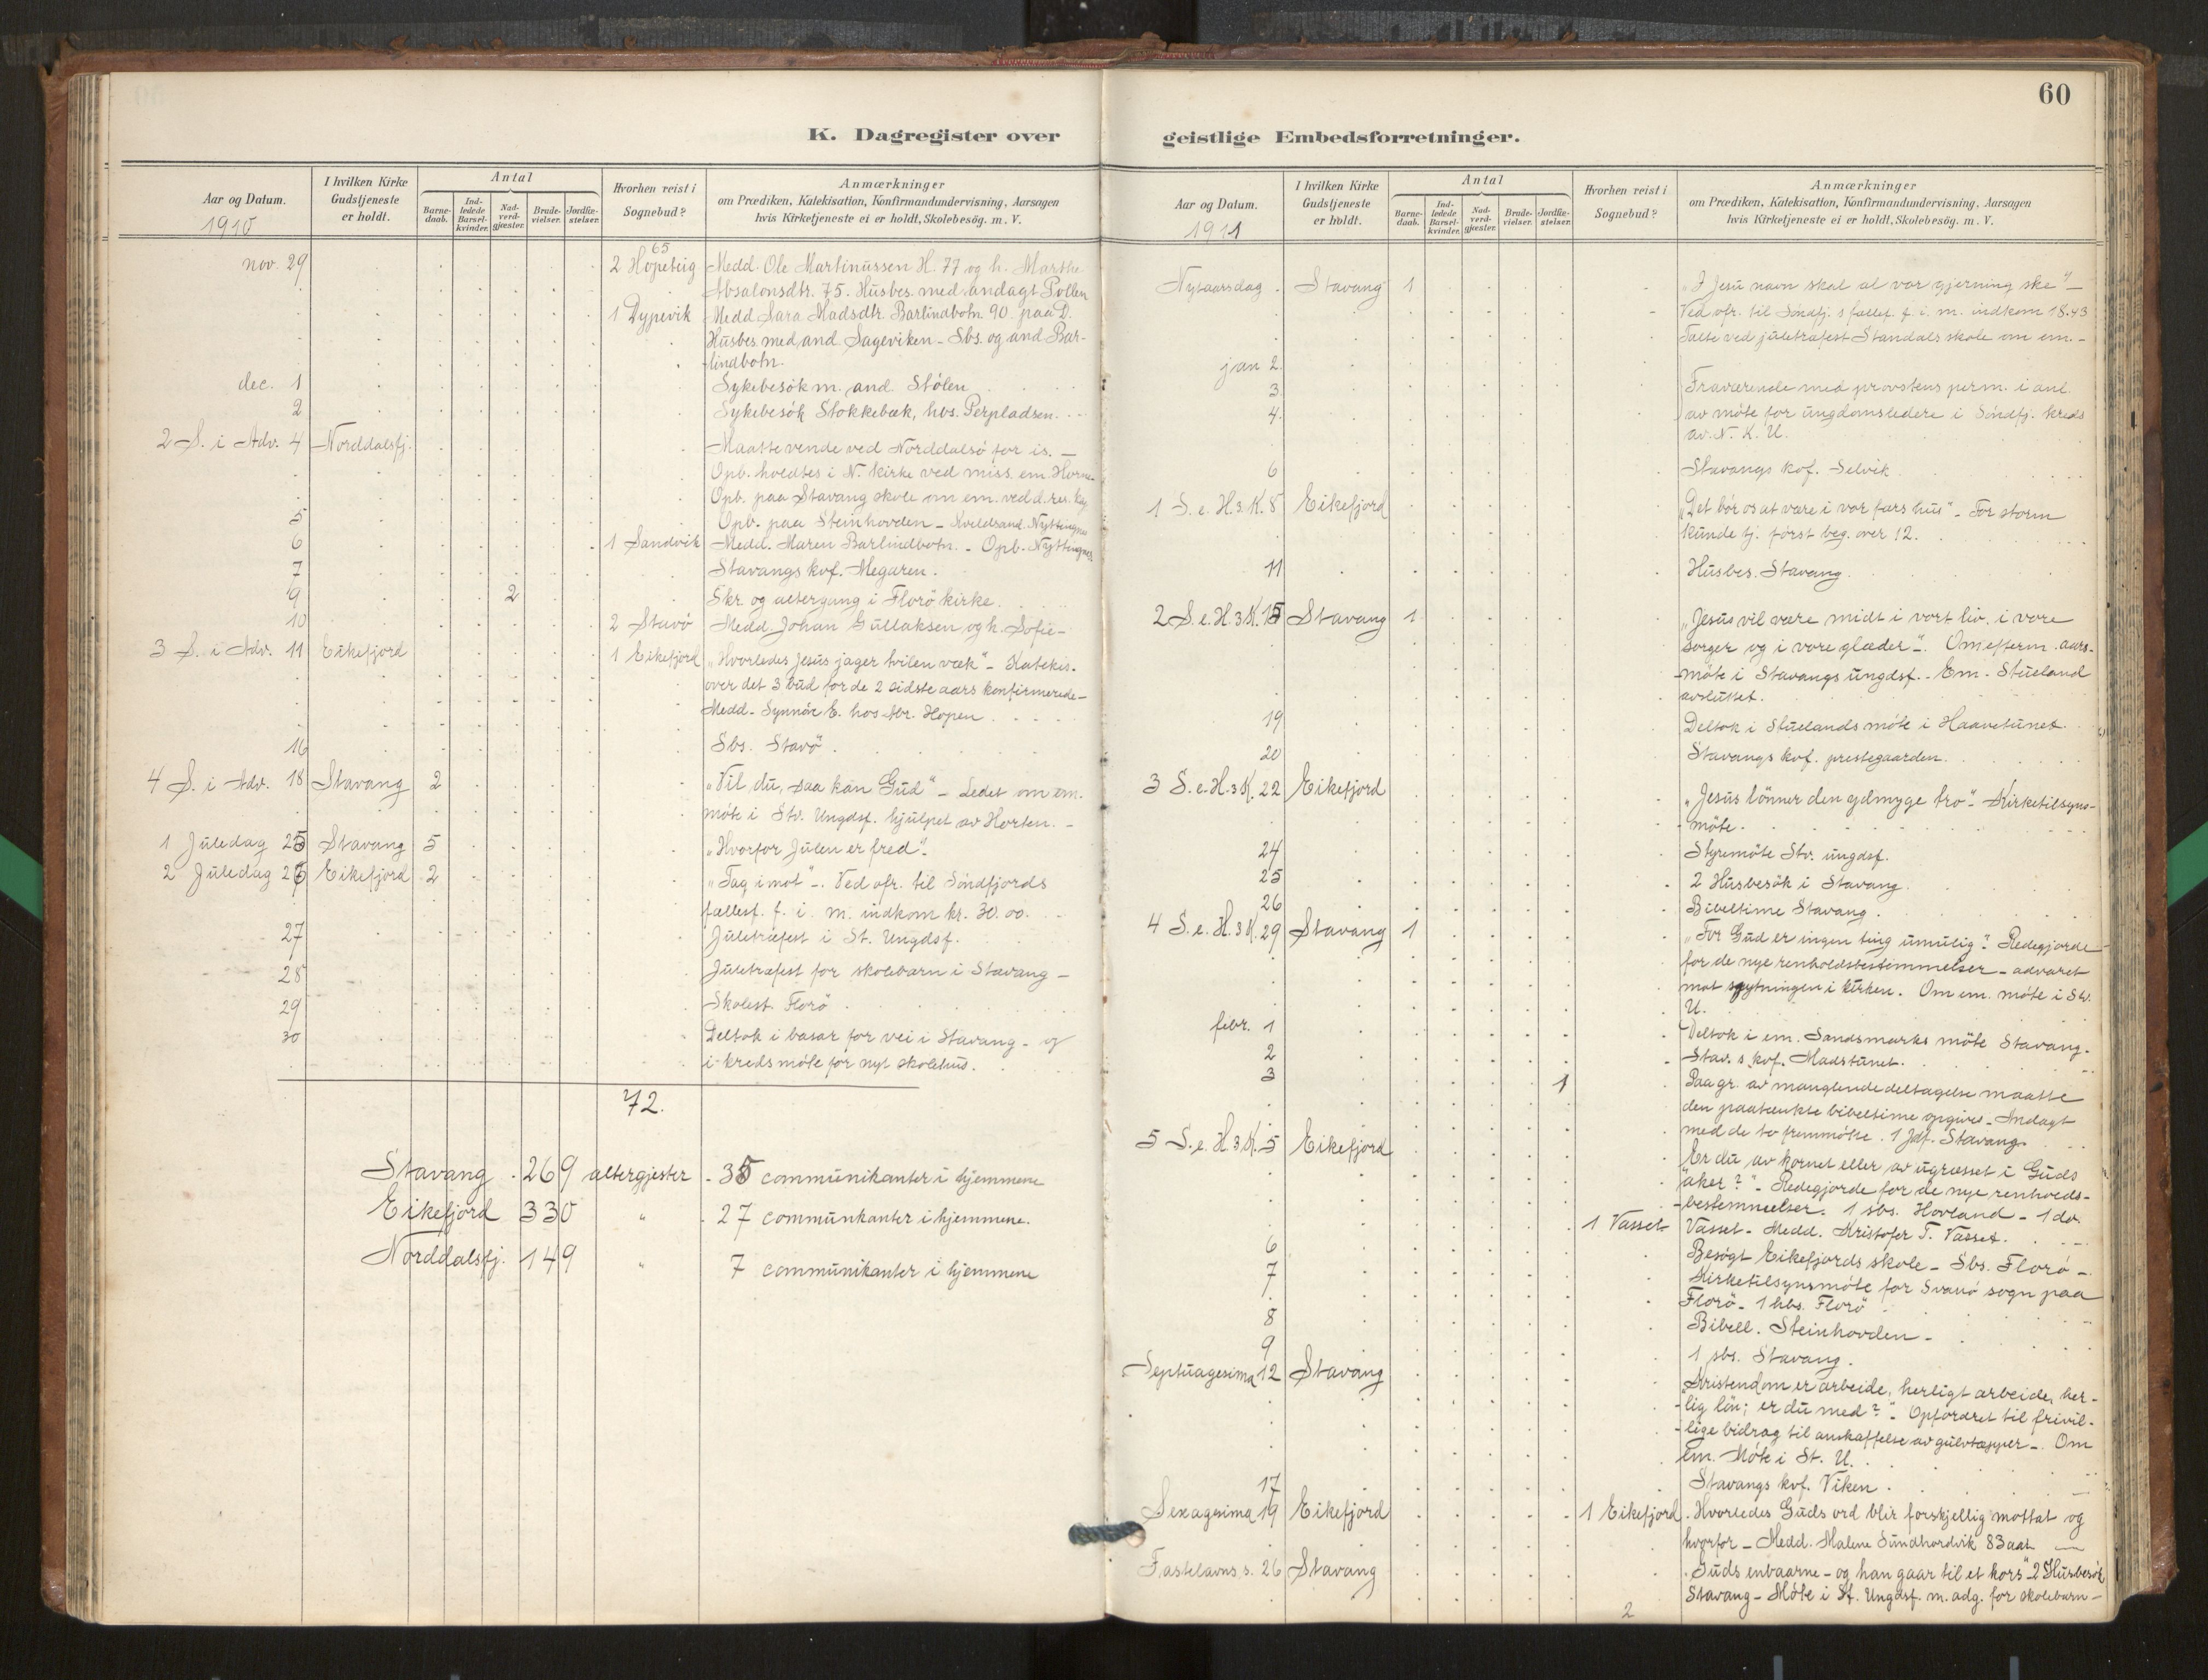 60
K. Dagregister over
Aar og Datum.
1910
I hvilken Kirke Gudstjeneste er holdt.
Antal
Barne-daab.
Ind-ledede Barsel-kvinder.
Nad-verd-gjæster.
Brude-vielser.
Jordfæ-stelser.
Hvorhen reist i Sognebud?
Anmærkninger
om Prædiken, Katekisation, Konfirmandundervisning, Aarsagen
hvis Kirketjeneste ei er holdt, Skolebesög. m. V.
65
nov. 29 2 Hopeteig Medd. Ole Martinussen H. 77 og h. Marthe
Absalonsdtr. 75. Husbes. med andagt Pollen
1 Dypevik Medd Sara Madsdtr Barlindbotn. 90. paa D.
Husbes. med and. Sageviken - Sbs. og and Bar-
lindbotn.
dec. 1 Sykebesök m. and. Stölen
2 Sykebesök Stokkebæk, hbs. Perpladsen.
2 S. i Adv. 4 Norddalsfj. Maatte vende ved Norddalsö for is. -
Opb. holdtes i N. kirke ved miss. em.
Opb. paa Stavang skole om em. ved d. res. kap.
5 Opb. paa Steinhovden - Kveldsand. Nyttingnes
6 1 Sandvik Medd. Maren Barlindbotn. - Opb. Nyttingnes
7 Stavangs kvf. Megaren.
9 2 Skr. og altergang i Florö kirke.
10 2 Stavö Medd. Johan Gullaksen og h. Sofie -
3 S. i Adv. 11 Eikefjord 1 Eikefjord „Hvorledes Jesus jager tvilen væk" - Katekis.
over det 3 bud for de 2 sidste aars konfirmerede -
Medd. Synnöv E. hos Hopen
16 Sbs. Stavö.
4 S. i Adv. 18 Stavang 2 „Vil du, saa kan Gud" - Ledet om em.
möte i Stv. Ungdsf. hjulpet av Horten. -
1 Juledag 25 Stavang 5 „Hvorfor Julen er fred".
2 Juledag 26 Eikefjord 2 „Tag imot" -. Ved ofr. til Söndfjords
fællesf. f. i. m. indkom kr. 30.00.
27 Juletræfest i St. Ungdsf.
28 Juletræfest for skolebarn i Stavang -
29 Skolest. Florö
30 Deltok i basar for vei i Stavang - og
i kredsmöte for nyt skolehus.
72.
Stavang 269 altergjester - 35 communikanter i hjemmene
Eikefjord 330 " 27 communkanter i hjemmene.
Norddalsfj. 149 " 7 communikanter i hjemmene
geistlige Embedsforretninger.
Aar og Datum.
1911
I hvilken Kirke Gudstjeneste er holdt.
Antal
Barne-daab.
Ind-ledede Barsel-kvinder.
Nad-verd-gjæster.
Brude-vielser.
Jordfæ-stelser.
Hvorhen reist i Sognebud?
Anmærkninger
om Prædiken, Katekisation, Konfirmandundervisning, Aarsagen
hvis Kirketjeneste ei er holdt, Skolebesög. m. V.
Nytaarsdag. Stavang 1 „I Jesu navn skal al vor gjerning ske" -
Ved ofr. til Söndfj. s fællesf. f. i. m. indkom 18.43
Talte ved juletræfest Standals skole om em. -
jan 2.
3 Fraværende med provstens perm. i anl.
4. av möte for ungdomsledere i Söndfj. kreds
av N. K. U.
6 Stavangs kvf. Selvik
1 S. e. H. 3. K. 8 Eikefjord „Det bör os at være i vor fars hus" - For storm
kunde tj. först beg. over 12.
11 Husbes. Stavang.
2 S. e. H. 3 K. 15 Stavang 1 „Jesus vil være midt i vort liv, i vore
sorger og i vore glæder" -. Om efterm. aars-
möte i Stavangs ungdsf. - Em. Stueland
avsluttet.
19 Deltok i Stuelands möte i Haavetunet.
20 Stavangs kvf. prestegaarden.
3 S. e. H. 3 K. 22 Eikefjord „Jesus lönner den ydmyge tro" - Kirketilsyns-
möte.
24 Styremöte Stv. ungdsf.
25 2 Husbesök i Stavang.
26 Bibeltime Stavang.
4 S. e. H. 3 K. 29 Stavang 1 „For Gud er ingen ting umulig". Redegjorde
for de nye renholdsbestemmelser - advaret
mot spytningen i kirken. Om em. möte i Stv.
U.
febr. 1 Deltok i em. Sandsmarks möte Stavang.
2 Stav. s kvf. Madstunet.
3 1 Paa gr. av manglende deltagelse maatte
den paatænkte bibeltime opgives. Andagt
med de to fremmötte. 1 Jdf. Stavang.
5 S. e. H. 3 K. 5 Eikefjord Er du av kornet eller av ugræsset i Guds
aker?" - Redegjorde for de nye renholds-
bestemmelser. 1 sbs. Hovland - 1 do.
1 Vasset Vasset - Medd. Kristofer T. Vasset.
6 Besögt Eikefjords skole - Sbs. Florö -
7 Kirketilsynsmöte for Svanö sogn paa
Florö - 1 hbs. Florö
8 Bibell. Steinhovden -
9 1 sbs. Stavang.
Septuagesima 12 Stavang „Kristendom er arbeide, herligt arbeide, her-
lig lön; er du med?" - Opfordret til frivil-
lige bidrag til anskaffelse av gulvtæpper -. Om
em. Möte i St. U.
17 Stavangs kvf. Viken.
Sexagesima 19 Eikefjord 1 Eikefjord Hvorledes Guds ord blir forskjellig mottat og
hvorfor - Medd. Malene Sundhordvik 83 aar -
Fastelavns s. 26 Stavang Guds enbaarne - og han gaar til et kors" - 2 Husbesök
Stavang - Möte i St. Ungdsf. m. adg. for skolebarn -
2